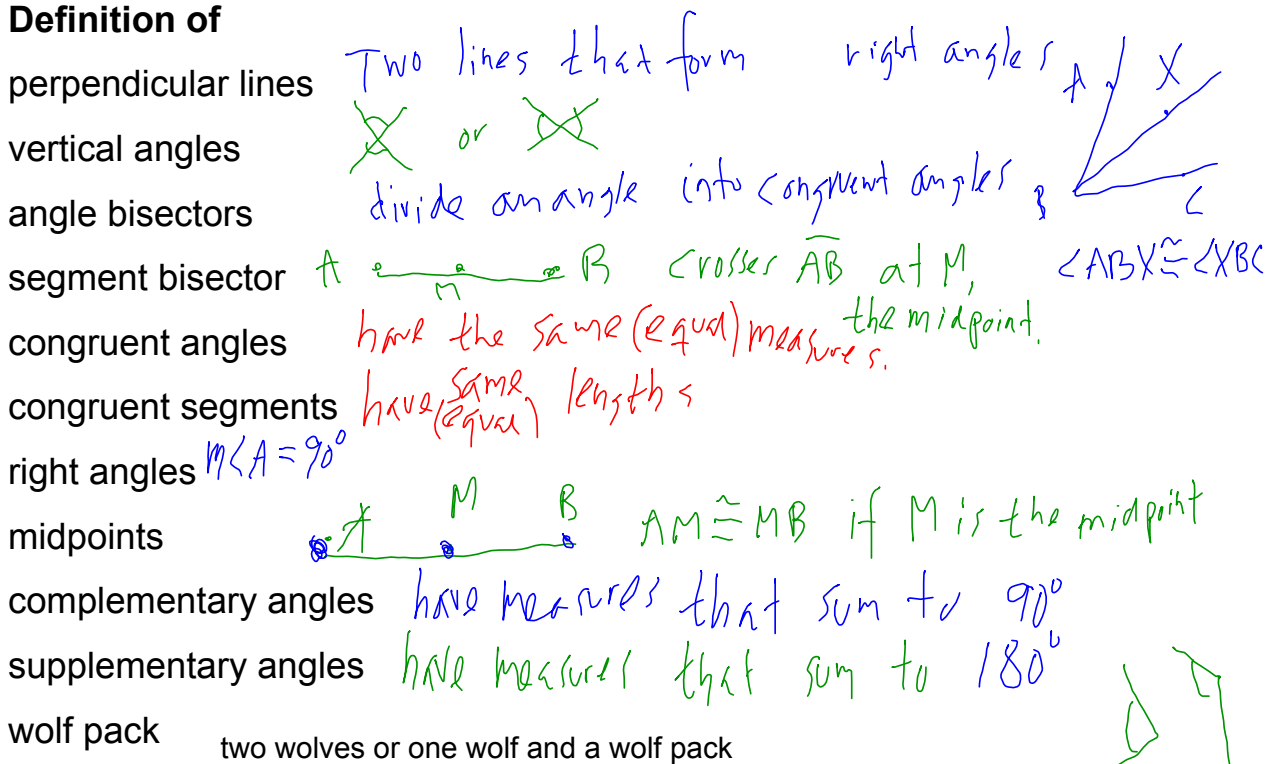 Definition of
perpendicular lines Two lines that form right angles
A X
vertical angles or
angle bisectors divide an angle into congruent angles B C
segment bisector A M B crosses AB at M, the midpoint. <ABX ≅ <XBC
congruent angles have the same (equal) measures.
congruent segments have same (equal) lengths
right angles m<A = 90°
midpoints A M B AM ≅ MB if M is the midpoint
complementary angles have measures that sum to 90°
supplementary angles have measures that sum to 180°
wolf pack two wolves or one wolf and a wolf pack